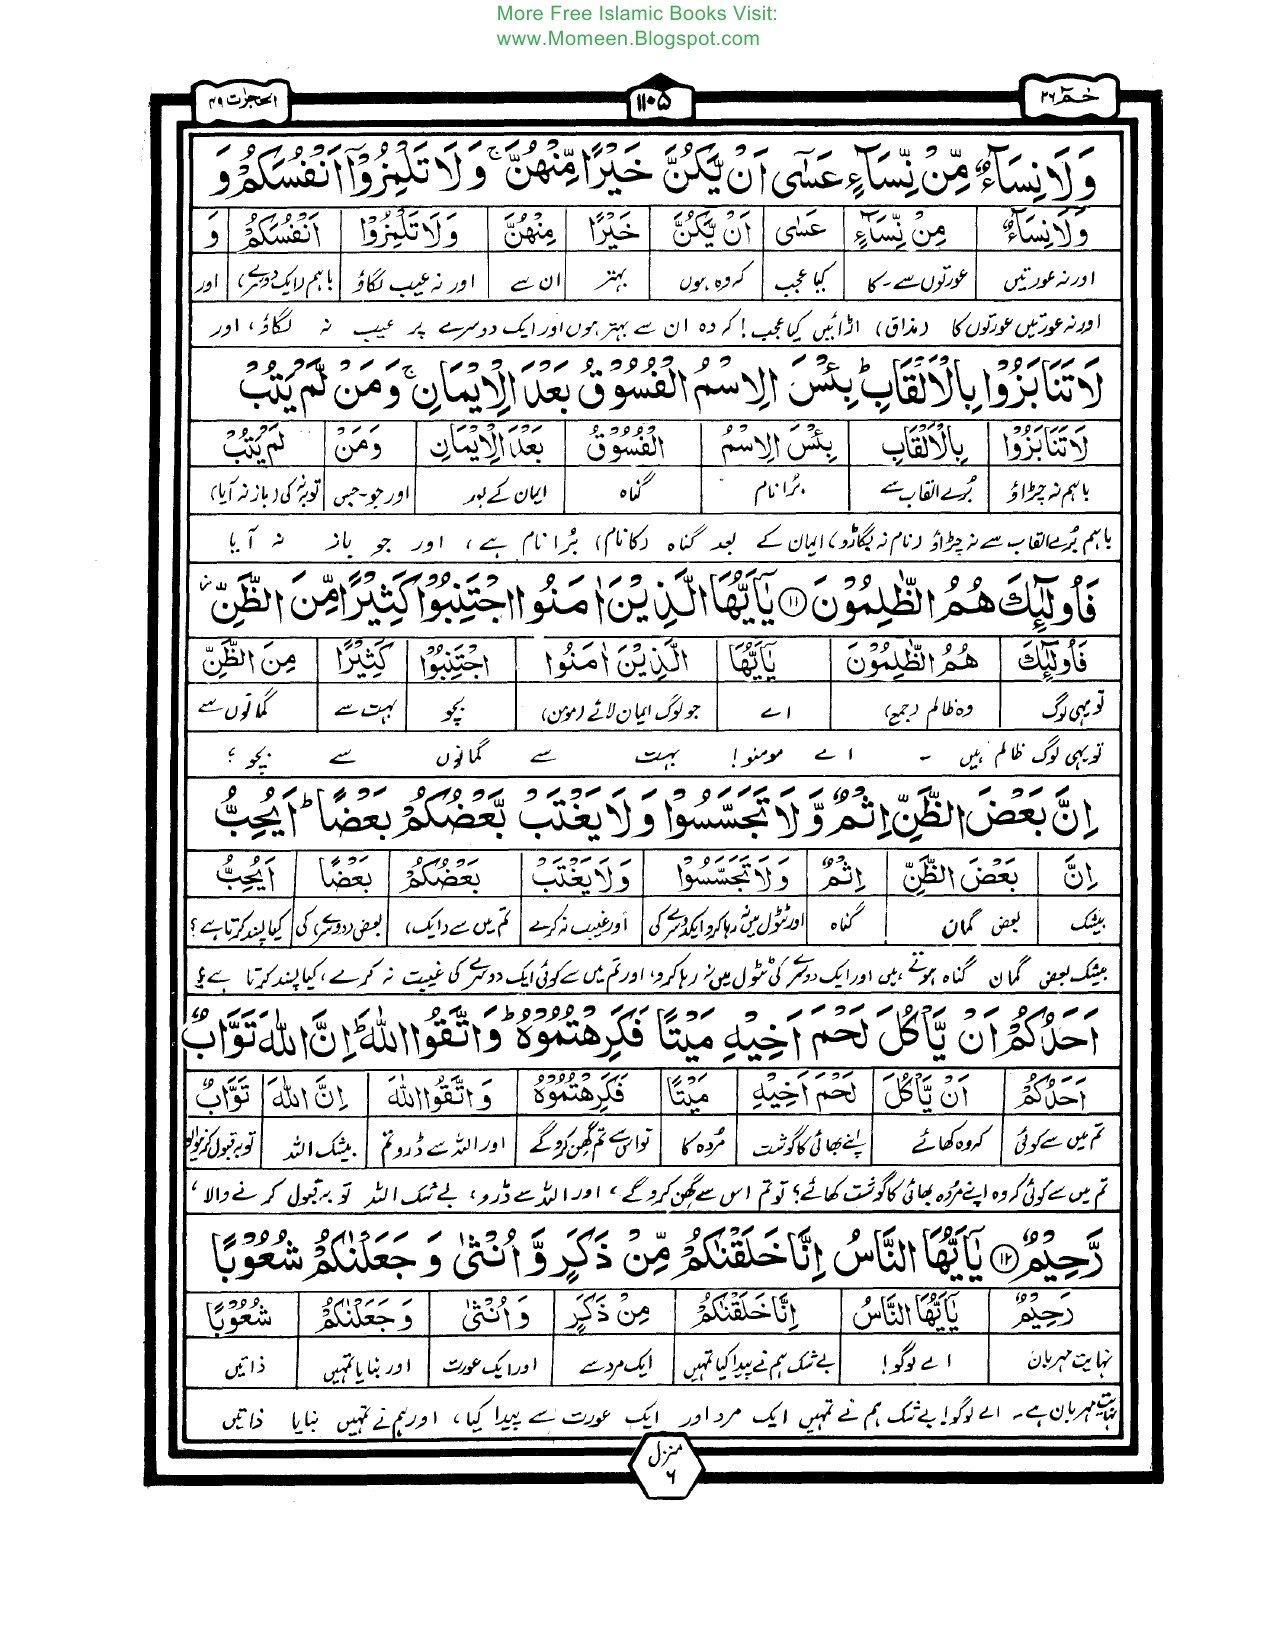 More Free Islamic Books Visit:
www.Momeen.Blogspot.com
حٰمٓ ٢٦ ١١٠٥ الحجرٰت ٤٩
وَلَا نِسَآءٌ مِّنْ نِّسَآءٍ عَسٰٓى اَنْ يَّكُنَّ خَيْرًا مِّنْهُنَّ ۚ وَلَا تَلْمِزُوْٓا اَنْفُسَكُمْ وَ
وَلَا نِسَآءٌ مِنْ نِّسَآءٍ عَسٰٓى اَنْ يَّكُنَّ خَيْرًا مِنْهُنَّ وَلَا تَلْمِزُوْٓا اَنْفُسَكُمْ وَ
اور نہ عورتیں عورتوں سے ۔ کا کیا عجب کہ وہ ہوں بہتر ان سے اور نہ عیب لگاؤ باہم (ایک دوسرے) اور
اور نہ عورتیں عورتوں کا (مذاق) اڑائیں کیا عجب! کہ وہ ان سے بہتر ہوں اور ایک دوسرے پر عیب نہ لگاؤ، اور
لَا تَنَابَزُوْا بِالْاَلْقَابِ ؕ بِئْسَ الِاسْمُ الْفُسُوْقُ بَعْدَ الْاِيْمَانِ ۚ وَمَنْ لَّمْ يَتُبْ
لَا تَنَابَزُوْا بِالْاَلْقَابِ بِئْسَ الِاسْمُ الْفُسُوْقُ بَعْدَ الْاِيْمَانِ وَمَنْ لَمْ يَتُبْ
باہم نہ چڑاؤ بُرے القاب سے بُرا نام گناہ ایمان کے بعد اور جو ۔ جس توبہ نہ کی (باز نہ آیا)
باہم بُرے القاب سے نہ چڑاؤ (نام نہ بگاڑو) ایمان کے بعد گناہ (کا نام) بُرا نام ہے، اور جو باز نہ آیا
فَاُولٰٓئِكَ هُمُ الظّٰلِمُوْنَ ⑪ يٰٓاَيُّهَا الَّذِيْنَ اٰمَنُوا اجْتَنِبُوْا كَثِيْرًا مِّنَ الظَّنِّ ۫
فَاُولٰٓئِكَ هُمُ الظّٰلِمُوْنَ يٰٓاَيُّهَا الَّذِيْنَ اٰمَنُوا اجْتَنِبُوْا كَثِيْرًا مِنَ الظَّنِّ
تو یہی لوگ وہ ظالم (جمع) اے جو لوگ ایمان لائے (مومن) بچو بہت سے گمانوں سے
تو یہی لوگ ظالم ہیں ۔ اے مومنو! بہت سے گمانوں سے بچو ؛
اِنَّ بَعْضَ الظَّنِّ اِثْمٌ وَّلَا تَجَسَّسُوْا وَلَا يَغْتَبْ بَّعْضُكُمْ بَعْضًا ؕ اَيُحِبُّ
اِنَّ بَعْضَ الظَّنِّ اِثْمٌ وَلَا تَجَسَّسُوْا وَلَا يَغْتَبْ بَعْضُكُمْ بَعْضًا اَيُحِبُّ
بیشک بعض گمان گناہ اور ٹٹول میں نہ رہا کرو ایک دوسرے کی اور غیبت نہ کرے تم میں سے (ایک) بعض (دوسرے) کی کیا پسند کرتا ہے؟
بیشک بعض گمان گناہ ہوتے ہیں اور ایک دوسرے کی ٹٹول میں نہ رہا کرو، اور تم میں سے کوئی ایک دوسرے کی غیبت نہ کرے، کیا پسند کرتا ہے؟
اَحَدُكُمْ اَنْ يَّاْكُلَ لَحْمَ اَخِيْهِ مَيْتًا فَكَرِهْتُمُوْهُ ؕ وَاتَّقُوا اللّٰهَ ؕ اِنَّ اللّٰهَ تَوَّابٌ
اَحَدُكُمْ اَنْ يَّاْكُلَ لَحْمَ اَخِيْهِ مَيْتًا فَكَرِهْتُمُوْهُ وَاتَّقُوا اللّٰهَ اِنَّ اللّٰهَ تَوَّابٌ
تم میں سے کوئی کہ وہ کھائے اپنے بھائی کا گوشت مُردہ کا تو اس سے تم گھن کرو گے اور اللہ سے ڈرو تم بیشک اللہ توبہ قبول کرنیوالا
تم میں سے کوئی کہ وہ اپنے مُردہ بھائی کا گوشت کھائے؟ تو تم اس سے گھن کرو گے، اور اللہ سے ڈرو، بے شک اللہ توبہ قبول کرنے والا،
رَّحِيْمٌ ⑫ يٰٓاَيُّهَا النَّاسُ اِنَّا خَلَقْنٰكُمْ مِّنْ ذَكَرٍ وَّاُنْثٰى وَجَعَلْنٰكُمْ شُعُوْبًا
رَحِيْمٌ يٰٓاَيُّهَا النَّاسُ اِنَّا خَلَقْنٰكُمْ مِنْ ذَكَرٍ وَاُنْثٰى وَجَعَلْنٰكُمْ شُعُوْبًا
نہایت مہربان اے لوگو! بے شک ہم نے پیدا کیا تمہیں ایک مرد سے اور ایک عورت اور بنایا تمہیں ذاتیں
نہایت مہربان ہے۔ اے لوگو! بے شک ہم نے تمہیں ایک مرد اور ایک عورت سے پیدا کیا، اور ہم نے تمہیں بنایا ذاتیں
منزل
٦